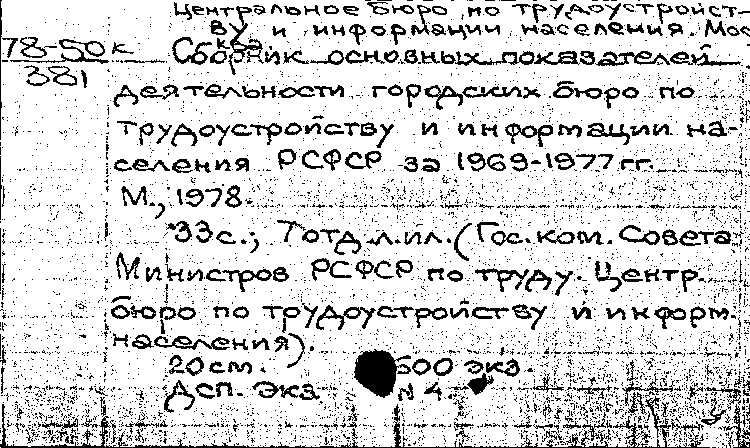 Центральное бюро по трудоустройст-
ву и информации населения. Мос
ква.
78-50к
381
Сборник основных показателей
деятельности городских бюро по
трудоустройству и информации на-
селения РСФСР за 1969-1977 гг.
М., 1978.
33с.; 7отд.л.ил. (Гос. ком. Совета
Министров РСФСР по труду. Центр.
бюро по трудоустройству и информ.
населения).
20см. 500 экз.
ДСП. Экз. N 4.